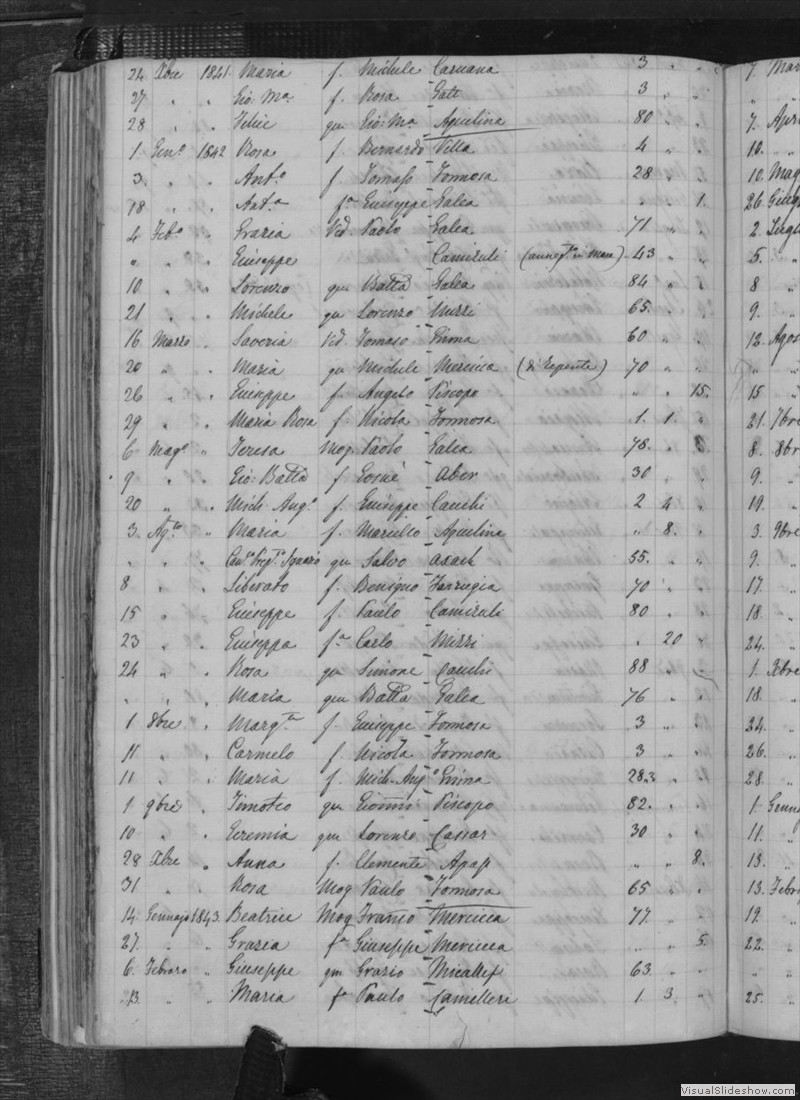 24 Xbre 1841 Maria f. Michele Caruana 3 " "
27 " " Gio: Ma. f. Rosa Gatt 3 " "
28 " " Felice qm Gio: Ma. Aquilina 80 " "
1 Genº 1842 Rosa f. Bernardo Villa 4 " "
3 " " Antº f. Tomaso Formosa 28 " "
18 " " Antª fª Giuseppe Galea " " 1.
4 Febº " Grazia Vid. Paolo Galea 71 " "
" " " Giuseppe Camizuli 43 " "
10 " " Lorenzo qm Batta Galea 84 " "
21 " " Michele qm Lorenzo Mizzi 65. " "
16 Marzo " Saveria Vid. Tomaso 60 " "
20 " " Maria qm Michele Mercieca (di Repente) 70 " "
26 " " Giuseppe f. Angelo Piscopo " " 15.
29 " " Maria Rosa f. Nicola Formosa 1. 1. "
6 Magº " Teresa Mog. Paolo Galea 78. "
9 " " Gio: Batta f. Giosuè Aber 30 " "
20 " " Mich: Angº f. Giuseppe Cauchi 2 4 "
3. Agto " Maria f. Marcello Aquilina " 8. "
" " " Ignazio qm Salvo Axiach 55. " "
8 " " Liberato f. Benigno Farrugia 70 " "
15 " " Giuseppe f. Paulo Camizuli 80 " "
23 " " Giuseppa fª Carlo Mizzi " 20 "
24 " " Rosa qm Simone Cauchi 88 " "
" " " Maria qm Batta Galea 76 " "
1 8bre " Margta f. Giuseppe Formosa 3 " "
11 " " Carmelo f. Nicola Formosa 3 " "
11 " " Maria f. Mich: Angº 28.3 " "
1 9bre " Timoteo qm Gionni: Piscopo 82. " "
10 " " Geremia qm Lorenzo Cassar 30 " "
28 Xbre " Anna f. Clemente Apap " " 8.
31 " " Rosa Mog Paulo Formosa 65 " "
14. Gennajo 1843. Beatrice Mog Franco Mercieca 77. " "
27. " " Grazia fª Giuseppe Mercieca " " 5.
6. Febraro " Giuseppe qm Grazio Micallef 63. " "
13. " " Maria fª Paulo Camilleri 1. 3. "
7. Mar
7. Apri
10. "
10. Mag
26 Giug
2. Lugl
5. "
8 "
9. "
12. Agos
" "
15 "
21. 7bre
8. 8bre
9. "
19. "
3. 9bre
9. "
17. "
18. "
24. "
1. Xbre
18. "
24. "
26. "
28. "
1. Genna
11. "
13. "
13. Febr
19. "
22. "
" "
25. "
VisualSlideshow.com